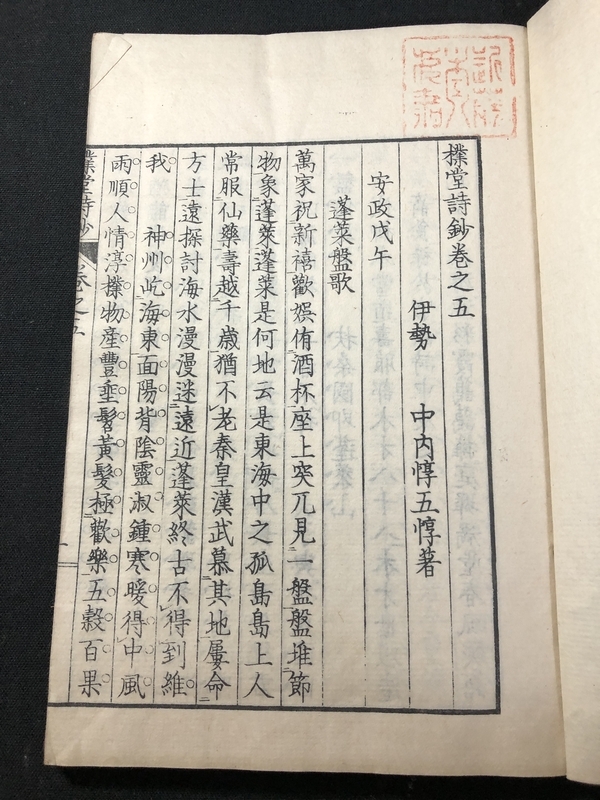 樸堂詩鈔卷之五
伊勢 中內惇五惇著
安政戊午
蓬萊盤歌
萬家祝新禧歡娯侑酒杯座上突兀見一盤盤堆節
物象蓬萊蓬萊是何地云是東海中之孤島島上人
常服仙藥壽越千歲猶不老秦皇漢武慕其地屢命
方士遠探討海水漫漫迷遠近蓬萊終古不得到維
我 神州屹海東面陽背陰靈淑鍾寒暖得中風
雨順人情淳樸物產豐垂髫黃髮極歡樂五穀百果
樸堂詩鈔 卷之五 一